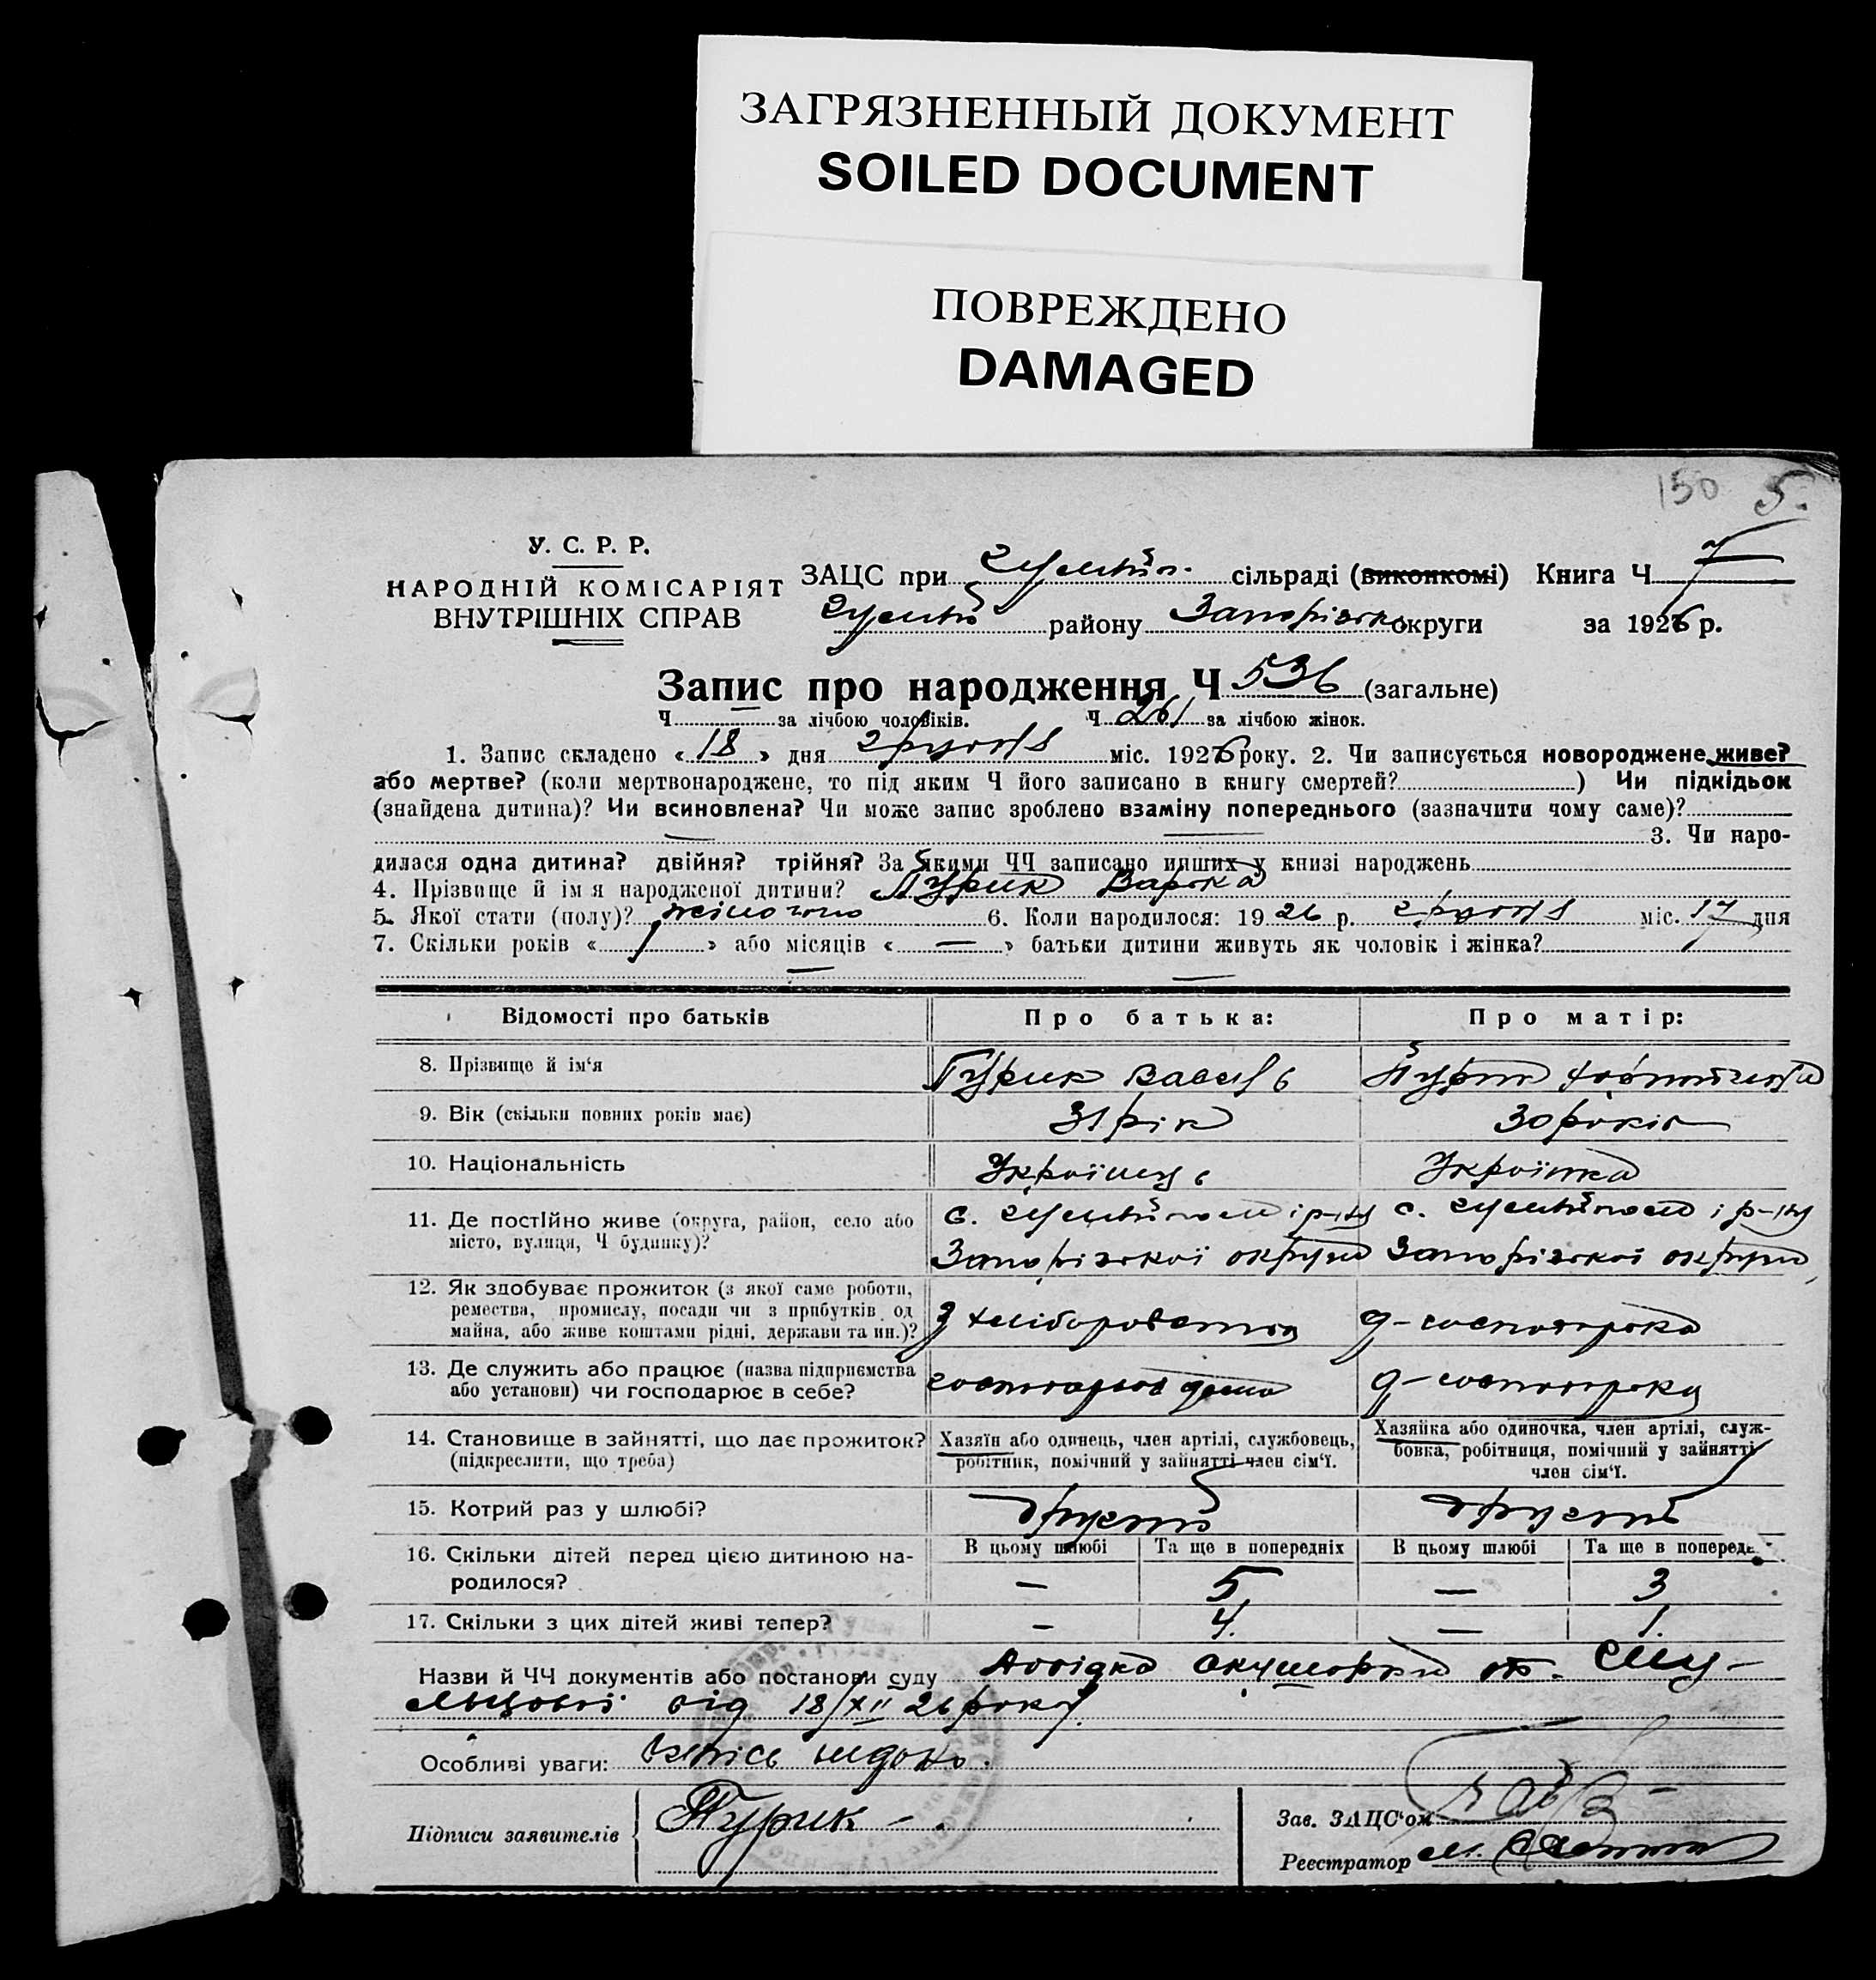 ЗАГРЯЗНЕННЫЙ ДОКУМЕНТ
SOILED DOCUMENT
ПОВРЕЖДЕНО
DAMAGED
150 5.
У. С. Р. Р.
НАРОДНІЙ КОМІСАРІЯТ
ВНУТРІШНІХ СПРАВ
ЗАЦС при сільраді (виконкомі) Книга Ч 7
району Запорізької округи за 1926 р.
Запис про народження Ч 536 (загальне)
Ч за лічбою чоловіків. Ч 261 за лічбою жінок.
1. Запис складено « 18 » дня грудня міс. 1926 року. 2. Чи записується новороджене живе?
або мертве? (коли мертвонароджене, то під яким Ч його записано в книгу смертей? ) Чи підкідьок
(знайдена дитина)? Чи всиновлена? Чи може запис зроблено взаміну попереднього (зазначити чому саме)?
— — 3. Чи наро-
дилася одна дитина? двійня? трійня? За якими ЧЧ записано инших у книзі народжень
4. Прізвище й ім я народженої дитини? Пурик Варка
5. Якої стати (полу)? жіночого 6. Коли народилося: 19 26 р. грудня міс. 17 дня
7. Скільки років « 1 » або місяців « — » батьки дитини живуть як чоловік і жінка?
— —
Відомості про батьків Про батька: Про матір:
8. Прізвище й ім'я Пурик Василь Пурик
9. Вік (скільки повних років має) 31 рік 30 років
10. Національність Українець Українка
11. Де постІйно живе (округа, район, село або с. і р-ну с. і р-ну
місто, вулиця, Ч будинку)? Запорізької округи Запорізької округи
12. Як здобуває прожиток (з якої саме роботи,
ремества, промислу, посади чи з прибутків од
майна, або живе коштами рідні, держави та ин.)? З хліборобства д-господарка
13. Де служить або працює (назва підприємства
або установи) чи господарює в себе? господарює дома д-господарка
14. Становище в зайнятті, що дає прожиток? Хазяїн або одинець, член артілі, службовець, Хазяйка або одиночка, член артілі, служ-
(підкреслити, що треба) робітник, помічний у зайнятті член сім'ї. бовка, робітниця, помічний у зайнятті
член сім'ї.
15. Котрий раз у шлюбі? другий другий
16. Скільки дітей перед цією дитиною на- В цьому шлюбі Та ще в попередніх В цьому шлюбі Та ще в поперед
родилося? — 5 — 3
17. Скільки з цих дітей живі тепер? — 4. — 1.
Назви й ЧЧ документів або постанови суду Довідка акушерки
від 18/XII 26 року.
Особливі уваги:
Підписи заявителів Пурик
Зав. ЗАЦС'ом
Реєстратор М.